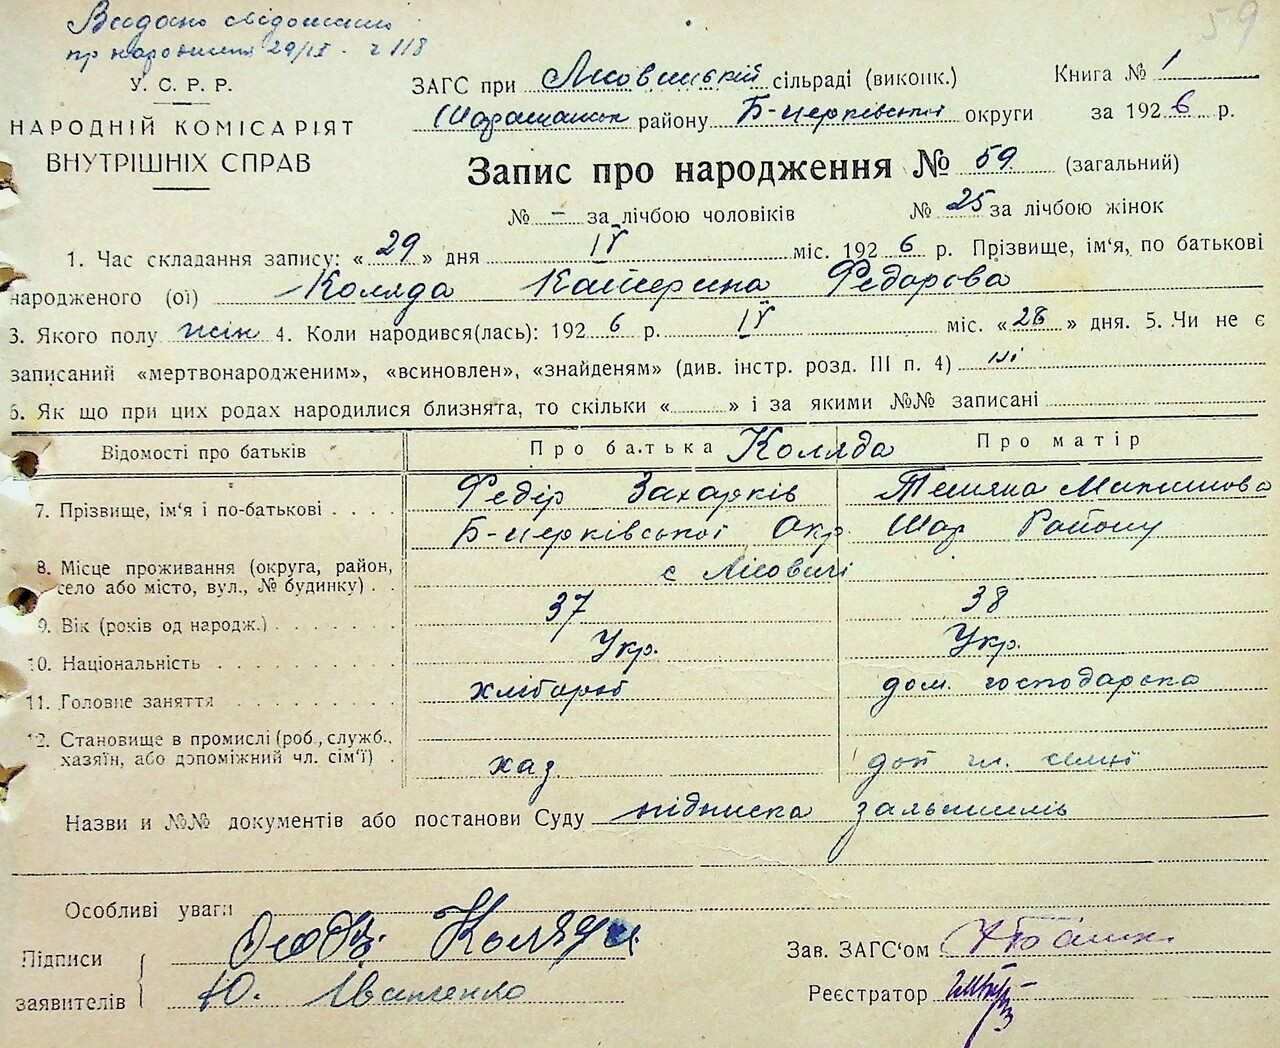 59
Видано свідоцтво
пр народження 29/IV - ч 118
У. С. Р. Р.
НАРОДНІЙ КОМІСАРІЯТ
ВНУТРІШНІХ СПРАВ
ЗАГС при Лісовицькій сільраді (виконк.)
району Б-церківської округи
Книга № 1
за 1926 р.
Запис про народження № 59 (загальний)
№ - за лічбою чоловіків № 25 за лічбою жінок
1. Час складання запису: «29» дня IV міс. 1926 р. Прізвище, ім'я, по батькові
народженого (ої) Коляда Катерина Федорова
3. Якого полу жін 4. Коли народився(лась): 1926 р. IV міс. «28» дня. 5. Чи не є
записаний «мертвонародженим», «всиновлен», «знайденям» (див. інстр. розд. III п. 4) ні
6. Як що при цих родах народилися близнята, то скільки «......» і за якими №№ записані
Відомості про батьків
Про батька Коляда Про матір
7. Прізвище, ім'я і по-батькові
Федір Захарків
Тетяна
8. Місце проживання (округа, район,
село або місто, вул., № будинку)
Б-церківської Окр. Шар Району
с Лісовичі
9. Вік (років од народж.) 37 38
10. Національність Укр. Укр.
11. Головне заняття хлібороб дом. господарка
12. Становище в промислі (роб., служб.,
хазяїн, або допоміжний чл. сім'ї)
хаз доп чл. семії
Назви и №№ документів або постанови Суду підписка
Особливі уваги
Підписи
заявителів
Коляди
Ю. Іваненко
Зав. ЗАГС'ом
Реєстратор